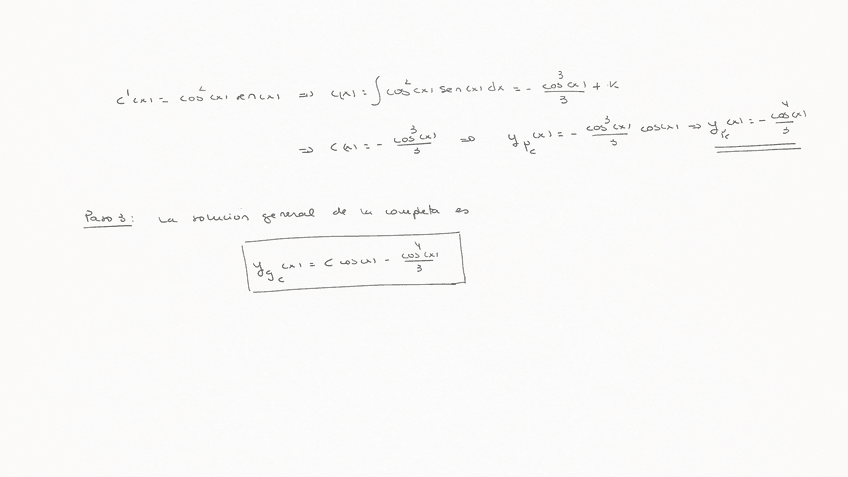 C'(x) = cos²(x) sen(x) ⇒ C(x) = ∫ cos²(x) sen(x) dx = - cos³(x)/3 + K
⇒ C(x) = - cos³(x)/3 ⇒ y_{p_c}(x) = - cos³(x)/3 cos(x) ⇒ y_{p_c}(x) = - cos⁴(x)/3
Paso 3: La solución general de la completa es
y_{g_c}(x) = C cos(x) - cos⁴(x)/3